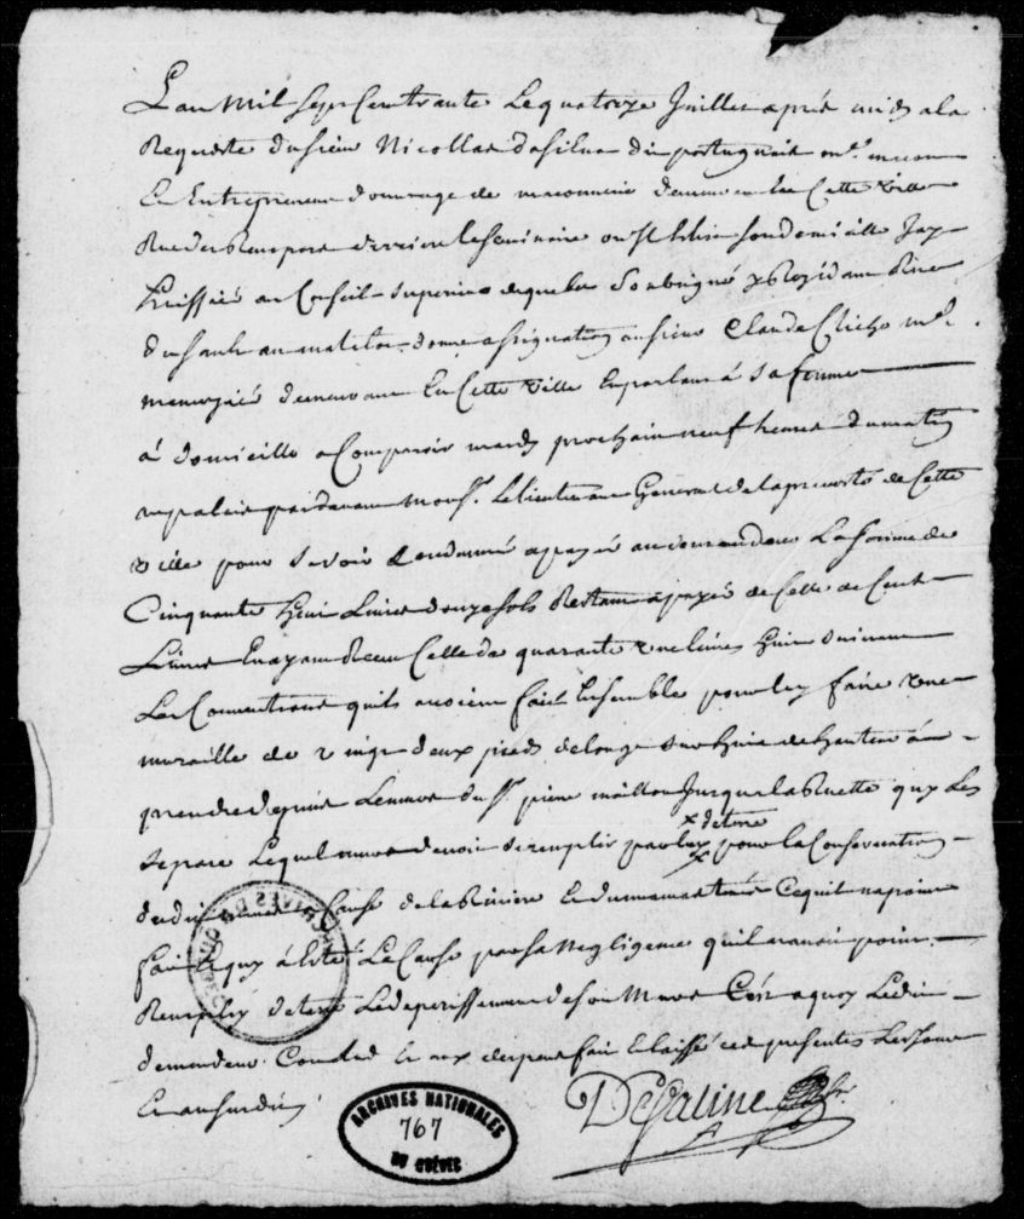 Lan mil sept Cent trante Le quatorze Juillet apres midy a la
Requeste du sieur Nicollas dasilua dit portugais me. masson
Et Entrepreneur douurage de massonnerie demeurant En Cette ville
Rue des Ramparts derriere le seminaire ou Il Elit son domicille Jay
huissier au Conseil superieur de quebec soubsigné y Rezidant Rue
du sault au matelot donné assignation au sieur Claude Cliche me.
menuzier demeurant En Cette ville En parlant à sa femme
à domicille a Comparoir mardy prochain neuf heures du matin
au palais pardeuant monsr. le lieutenant General de la preuosté de Cette
ville pour se voir Condamné a payer au demandeur La somme de
Cinquante huit Liures douze sols Restant à payer de Celle de Cent
Liures En ayant Receu Celle de quarante une liures huit s suiuant
Les Conuentions quils auoient fait Ensemble pour luy faire une
muraille de vingt deux pieds de longt sur huit de hauteur à
prendre depuis Le mur du sr. pierre maillou Jusqua la Ruette quy Les
separe Lequel mur deuoit se remplir par luy x pour la Conseruation
x de terre
dudit mur a Cause de la Riuiere Et du mauuais Ce quil na point
fait Ce quy à Esté La Cause par sa Negligence quil nauoit point
Remply de terre Le deperissement de son Mur Cest a quoy Ledit
demandeur Conclud Et aux despens fait Et laissé ces presentes Les Jour
Et an susdits
DeSaline
ARCHIVES NATIONALES
767
DU QUÉBEC